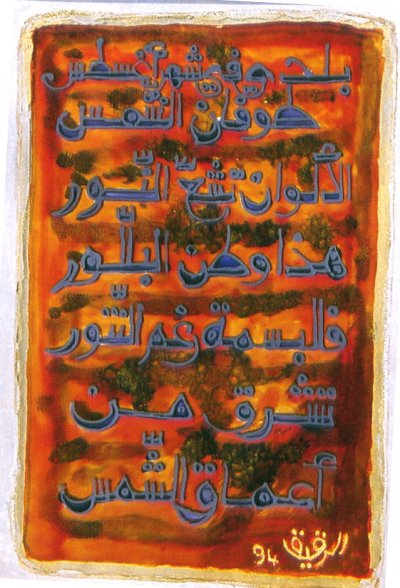 بلدي في شهر أغسطس
طوفان الشّمس
الألوان تشعّ النّور
هذا وطن البلّور
فالبسمة رغم
تشرق من
أعماق الشّمس
الرقيق 94